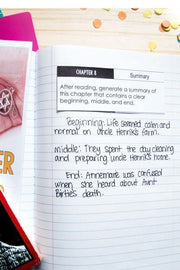 CHAPTER 8
Summary
After reading, generate a summary of
this chapter that contains a clear
beginning, middle, and end.
Beginning: Life seemed calm and
normal on Uncle Henrik's farm.
middle: They spent the day cleaning
and preparing uncle Henrik's home.
End: Annemarie was confused
when she heard about Aunt
Birtie's death.
ER